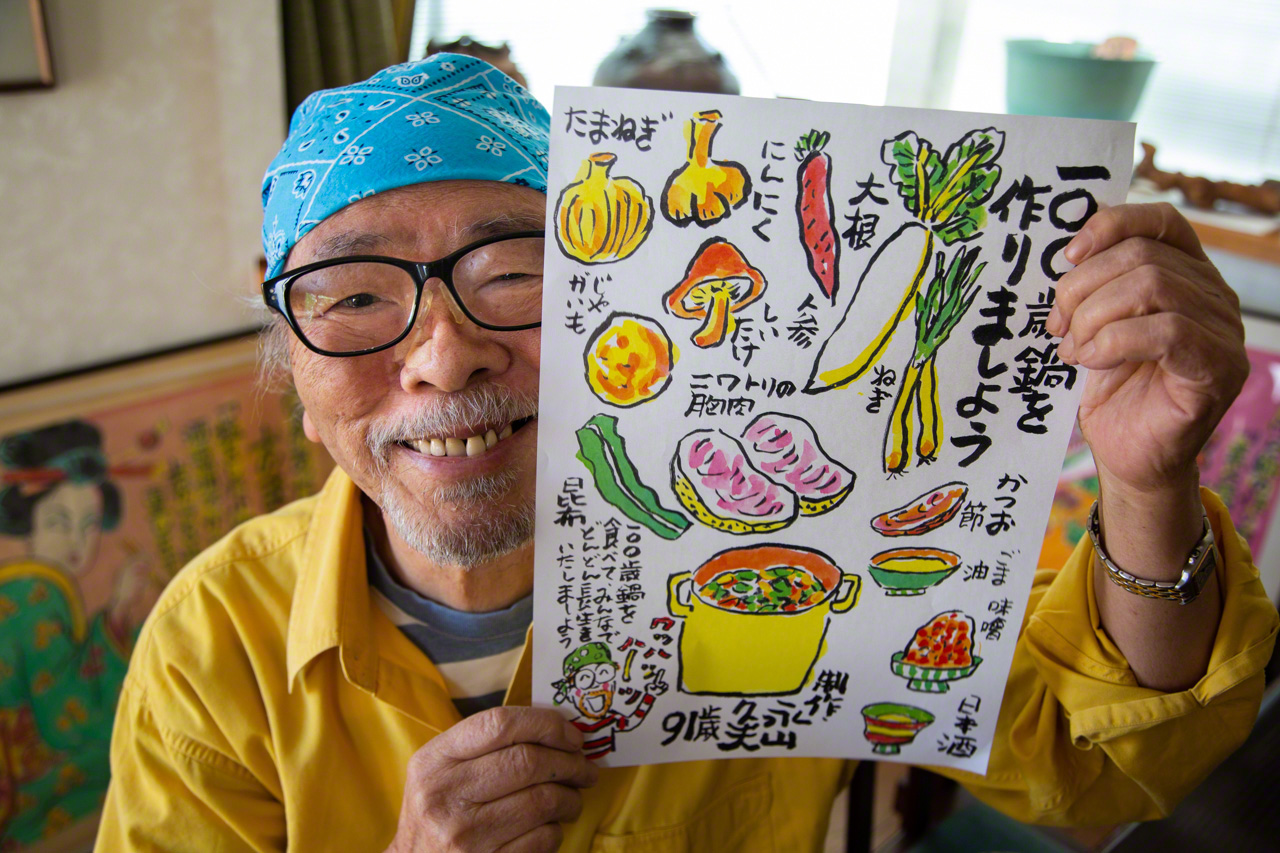 一〇〇歳鍋を
作りましょう
大根
人参
にんにく
たまねぎ
ねぎ
しい
たけ
じゃ
がいも
ニワトリの
胸肉
昆布
かつお
節
ごま
油
味噌
日本酒
一〇〇歳鍋を
食べて、みんなで
どんどん長生き
いたしましょう
制作・
91歳